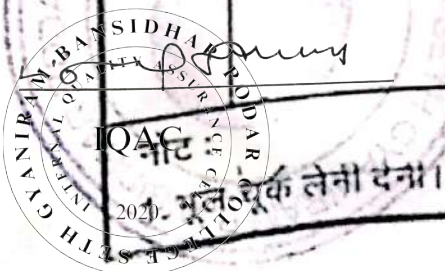 SETH GYANIRAM BANSIDHAR PODAR COLLEGE
INTERNAL QUALITY ASSURANCE CELL
IQAC
2020
नोट :
1. भूल चूक लेनी देनी।